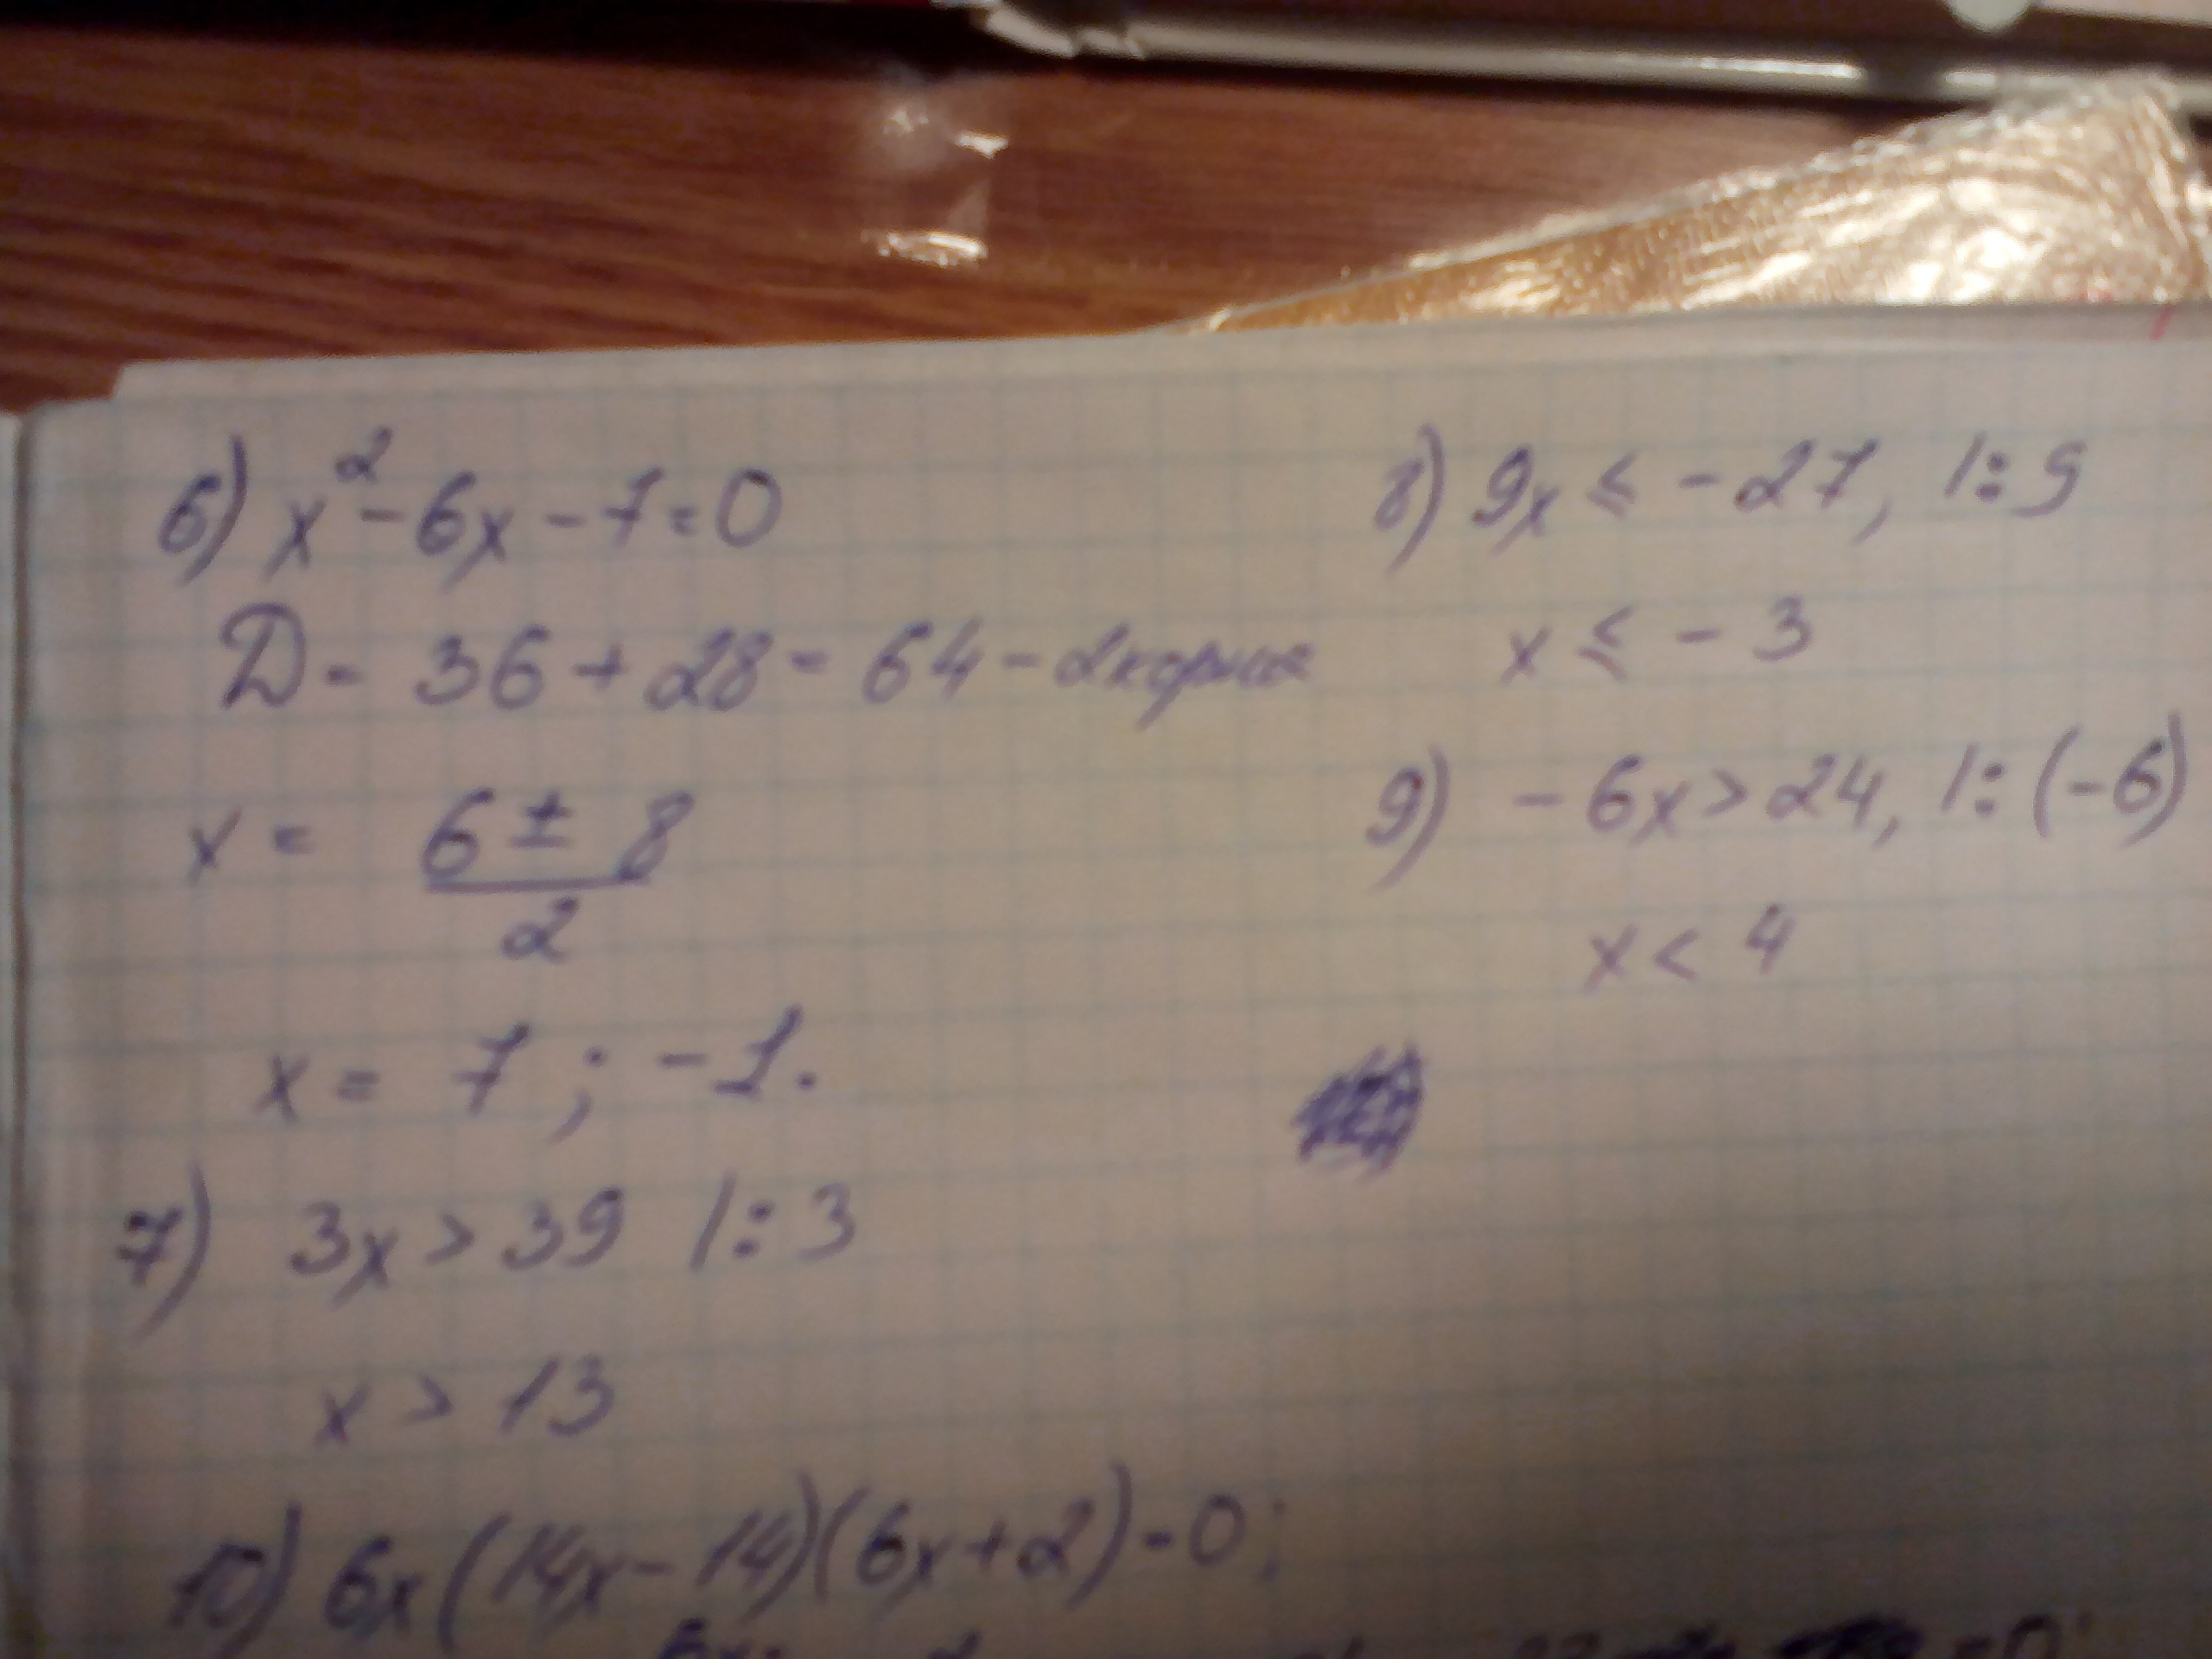 6) x² - 6x - 7 = 0
D = 36 + 28 = 64 - 2 корня
x = (6 ± 8)/2
x = 7 ; -1.
7) 3x > 39 |: 3
x > 13
8) 9x ≤ -27, |: 9
x ≤ -3
9) -6x > 24, |: (-6)
x < 4
10) 6x(14x - 14)(6x + 2) = 0;